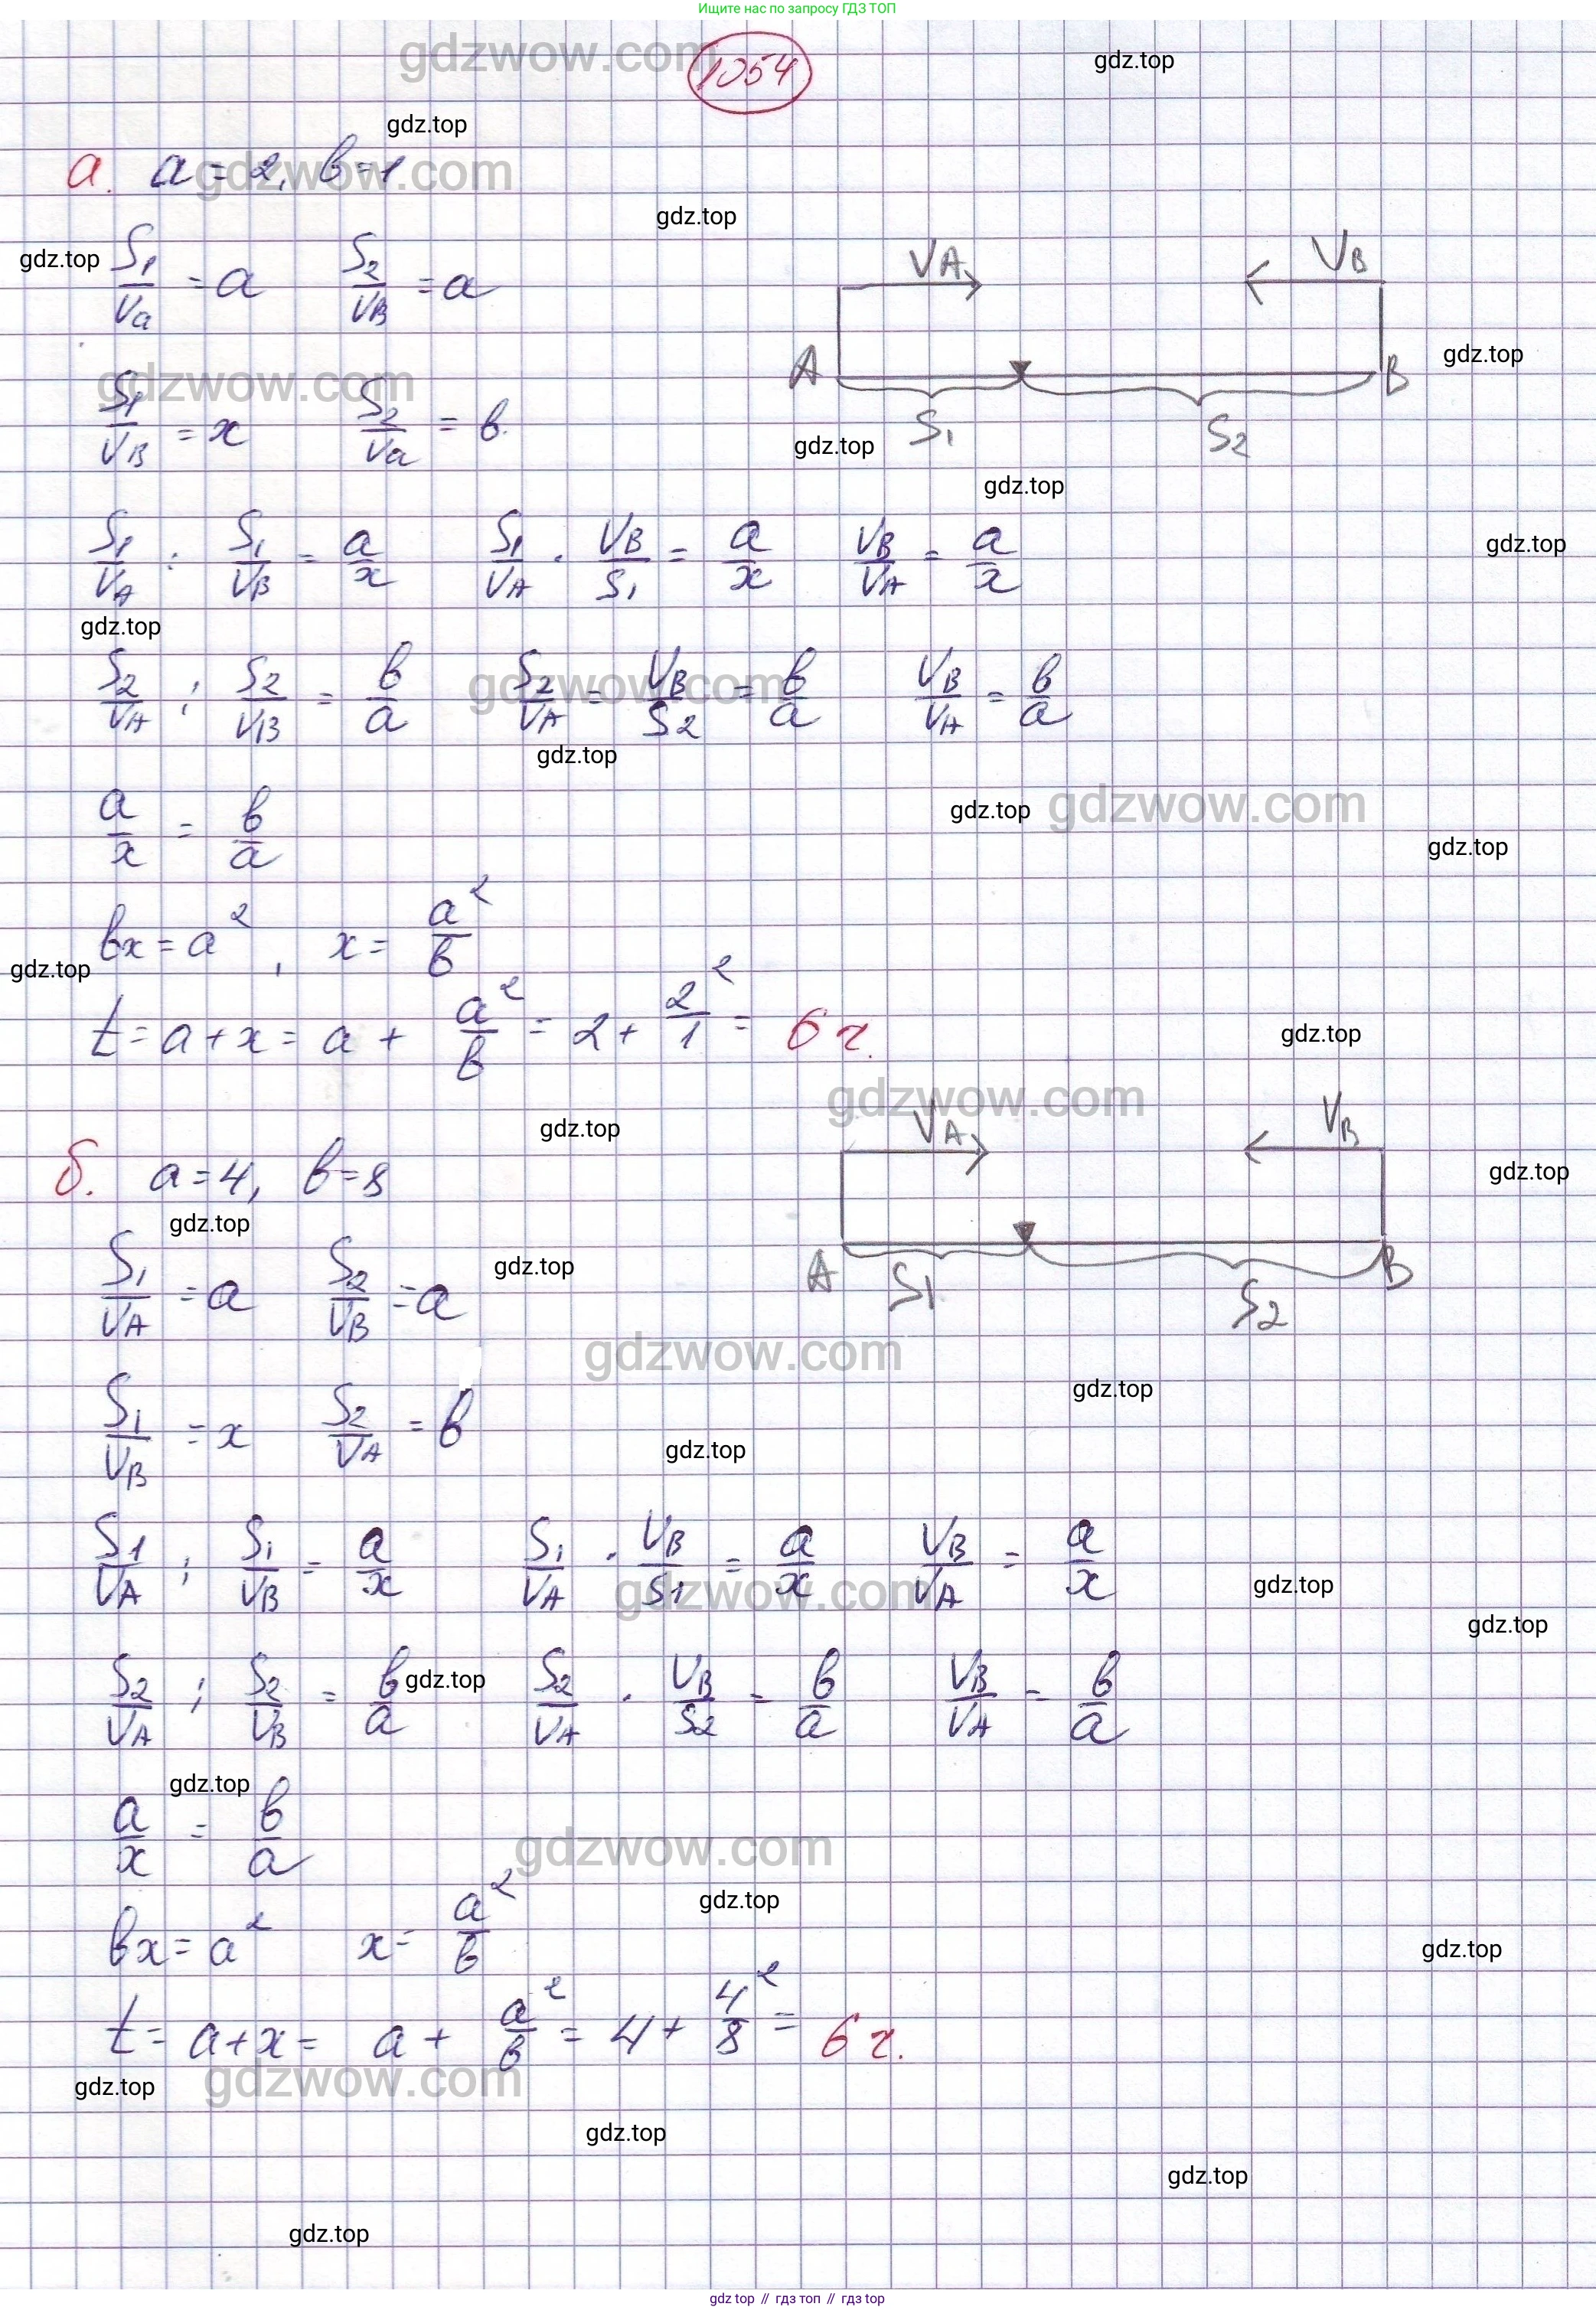 Ищите нас по запросу ГДЗ ТОП
1054
gdzwow.com
gdz.top
gdz.top
а. a = 2, b = 1
gdzwow.com
gdz.top
gdz.top
S₁/Va = a S₂/VB = a
VA VB
gdz.top
A B
gdzwow.com
S₁/VB = x S₂/Va = b.
S₁ S₂
gdz.top
gdz.top
gdz.top
S₁/VA : S₁/VB = a/x S₁/VA · VB/S₁ = a/x VB/VA = a/x
gdz.top
S₂/VA : S₂/VB = b/a S₂/VA = VB/S₂ = b/a VB/VA = b/a
gdzwow.com
gdz.top
gdz.top
gdzwow.com
a/x = b/a
gdz.top
bx = a², x = a²/b
gdz.top
t = a + x = a + a²/b = 2 + 2²/1 = 6 ч.
gdz.top
gdzwow.com
VA VB
gdz.top
б. a = 4, b = 8
gdz.top
gdz.top
gdz.top
S₁/VA = a S₂/VB = a
A S₁ S₂ B
gdzwow.com
gdz.top
S₁/VB = x S₂/VA = b
gdz.top
S₁/VA : S₁/VB = a/x S₁/VA · VB/S₁ = a/x VB/VA = a/x
gdzwow.com
gdz.top
gdz.top
S₂/VA : S₂/VB = b/a S₂/VA · VB/S₂ = b/a VB/VA = b/a
gdz.top
gdz.top
a/x = b/a
gdzwow.com
gdz.top
bx = a² x = a²/b
gdz.top
t = a + x = a + a²/b = 4 + 4²/8 = 6 ч.
gdzwow.com
gdz.top
gdz.top
gdz.top
gdz.top
gdz top // гдз топ // гдз top